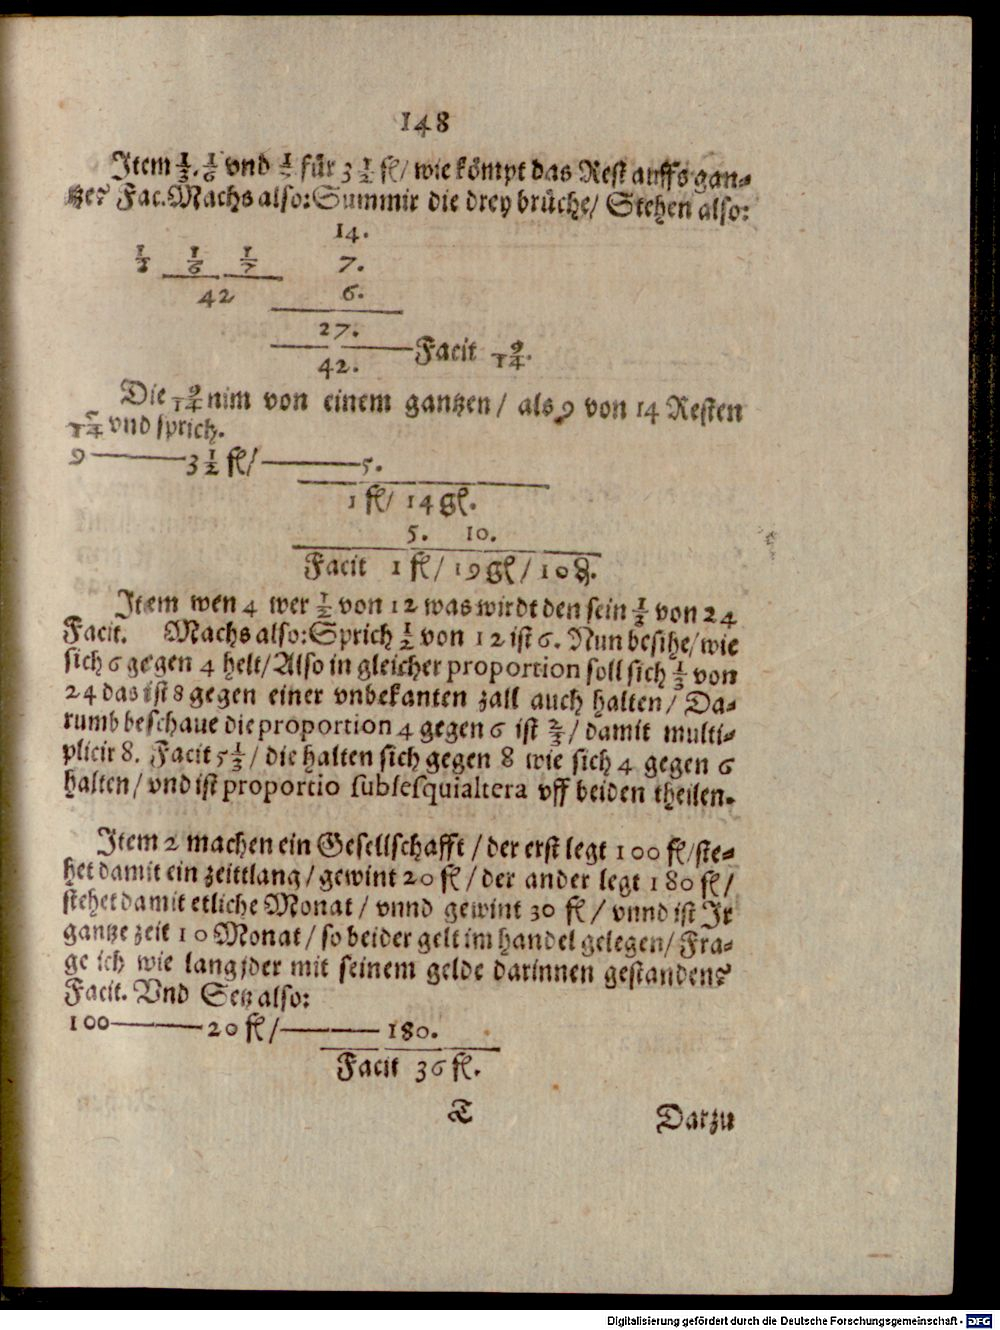 148
Item 1/3. 1/6 vnd 1/7 für 3 1/2 fl/ wie kömpt das Rest auffs gan-
tze? Fac. Machs also: Summir die drey brüche/ Stehen also:
14.
1/3 1/6 1/7 7.
42 6.
27.
42. Facit 9/14.
Die 9/14 nim von einem gantzen/ als 9 von 14 Resten
5/14 vnd sprich.
9 —— 3 1/2 fl/ —— 5.
1 fl/ 14 gl.
5. 10.
Facit 1 fl/ 19 gl/ 10 ₰.
Item wen 4 wer 1/2 von 12 was wirdt den sein 1/3 von 24
Facit. Machs also: Sprich 1/2 von 12 ist 6. Nun besihe/ wie
sich 6 gegen 4 helt/ Also in gleicher proportion soll sich 1/3 von
24 das ist 8 gegen einer vnbekanten zall auch halten/ Da-
rumb beschaue die proportion 4 gegen 6 ist 2/3/ damit multi-
plicir 8. Facit 5 1/3/ die halten sich gegen 8 wie sich 4 gegen 6
halten/ vnd ist proportio subsesquialtera vff beiden theilen.
Item 2 machen ein Gesellschafft/ der erst legt 100 fl/ ste-
het damit ein zeittlang/ gewint 20 fl/ der ander legt 180 fl/
stehet damit etliche Monat/ vnnd gewint 30 fl/ vnnd ist Ir
gantze zeit 10 Monat/ so beider gelt im handel gelegen/ Fra-
ge ich wie lang jder mit seinem gelde darinnen gestanden?
Facit. Vnd Setz also:
100 —— 20 fl/ —— 180.
Facit 36 fl.
T Darzu
Digitalisierung gefördert durch die Deutsche Forschungsgemeinschaft - DFG